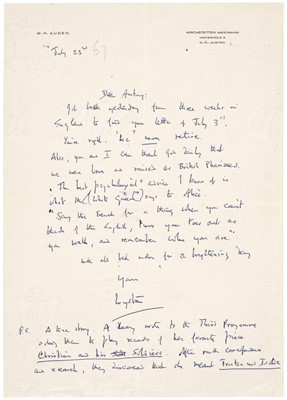 W. H. AUDEN
KIRCHSTETTEN
HINTERHOLZ 6
N.-Ö., AUSTRIA
July 23rd 67
Dear Antony:
Got back yesterday from three weeks in
England to find your letter of July 3rd.
You're right. "We" never retire.
Also, you and I can thank God daily that
we were born and raised as British
"The best psychological advice I know of is
what the (White Queen) says to Alice.
"Say the French for a thing when you can't
think of the English, turn your toes out as
you walk, and remember who you are"
love
Wystan
P.S. A true story. A lady wrote to the Third Programme
asking them to play records of her favorite piece
Christian and his Soldiers. After much correspondence
and research, they discovered that she meant Tristan und Isolde